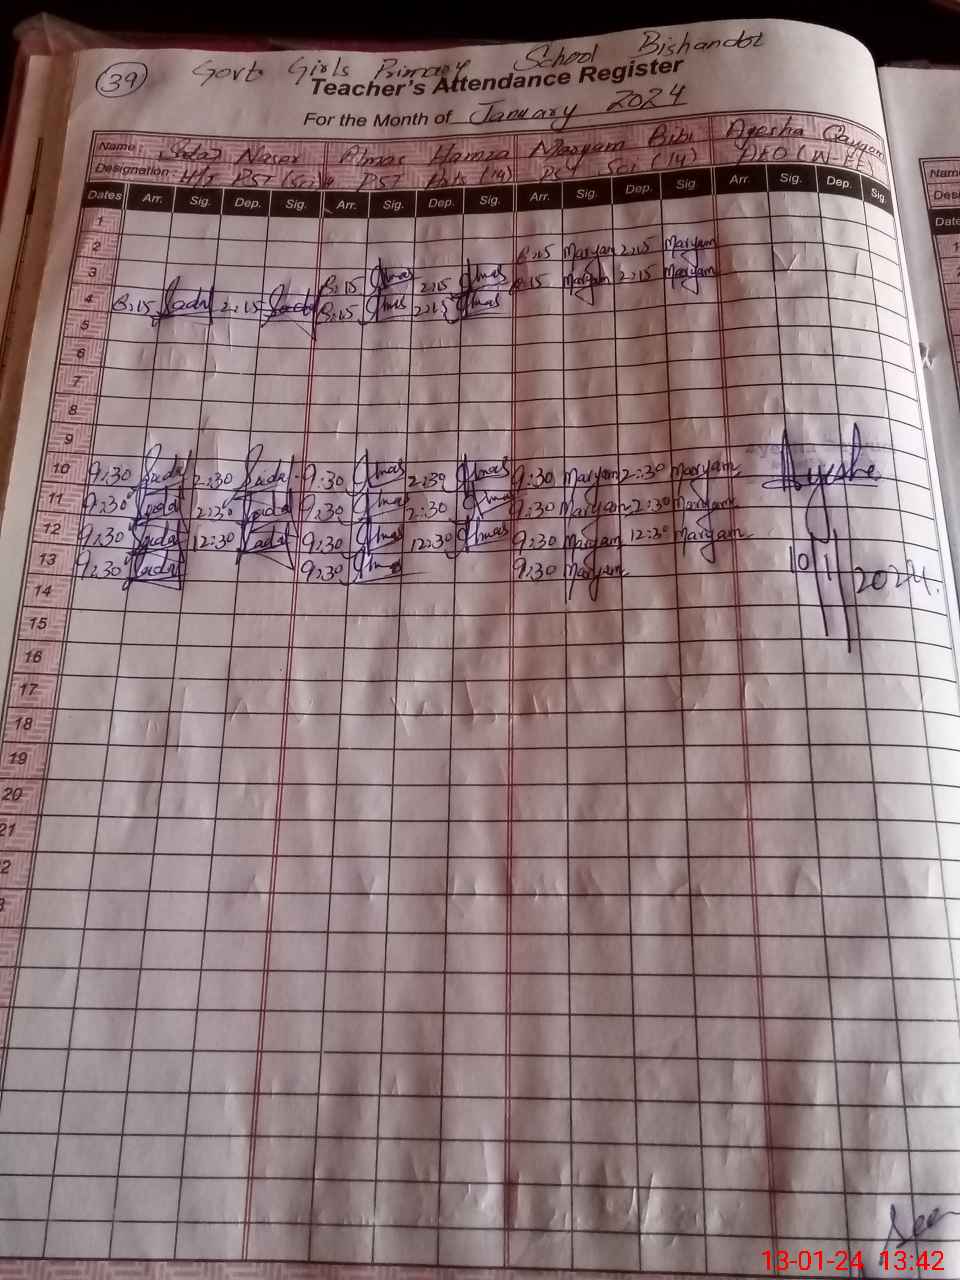 39 Govt Girls Primary School Bishandot
Teacher's Attendance Register
For the Month of January 2024
Name: Naser Almas Hamza Maryam Bibi Ayesha
Designation: PST PST (14) Sci (14)
Dates Arr. Sig. Dep. Sig. Arr. Sig. Dep. Sig. Arr. Sig. Dep. Sig Arr. Sig. Dep. Sig.
1
2 8:15 Maryam 2:15 Maryam
3 8:15 Almas 2:15 Almas 8:15 Maryam 2:15 Maryam
4 8:15 2:15 8:15 Almas 2:15 Almas
5
6
7
8
9
10 9:30 2:30 9:30 Almas 2:30 Almas 9:30 Maryam 2:30 Maryam Ayesha
11 9:30 2:30 9:30 Almas 2:30 Almas 9:30 Maryam 2:30 Maryam
12 9:30 12:30 9:30 Almas 12:30 Almas 9:30 Maryam 12:30 Maryam
13 9:30 9:30 Almas 9:30 Maryam 10/1/2024.
14
15
16
17
18
19
20
21
Seen
13-01-24 13:42